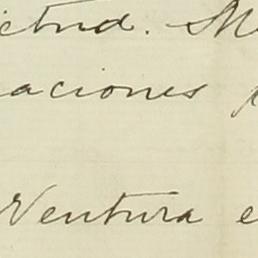 ctud. M
aciones
Ventura e